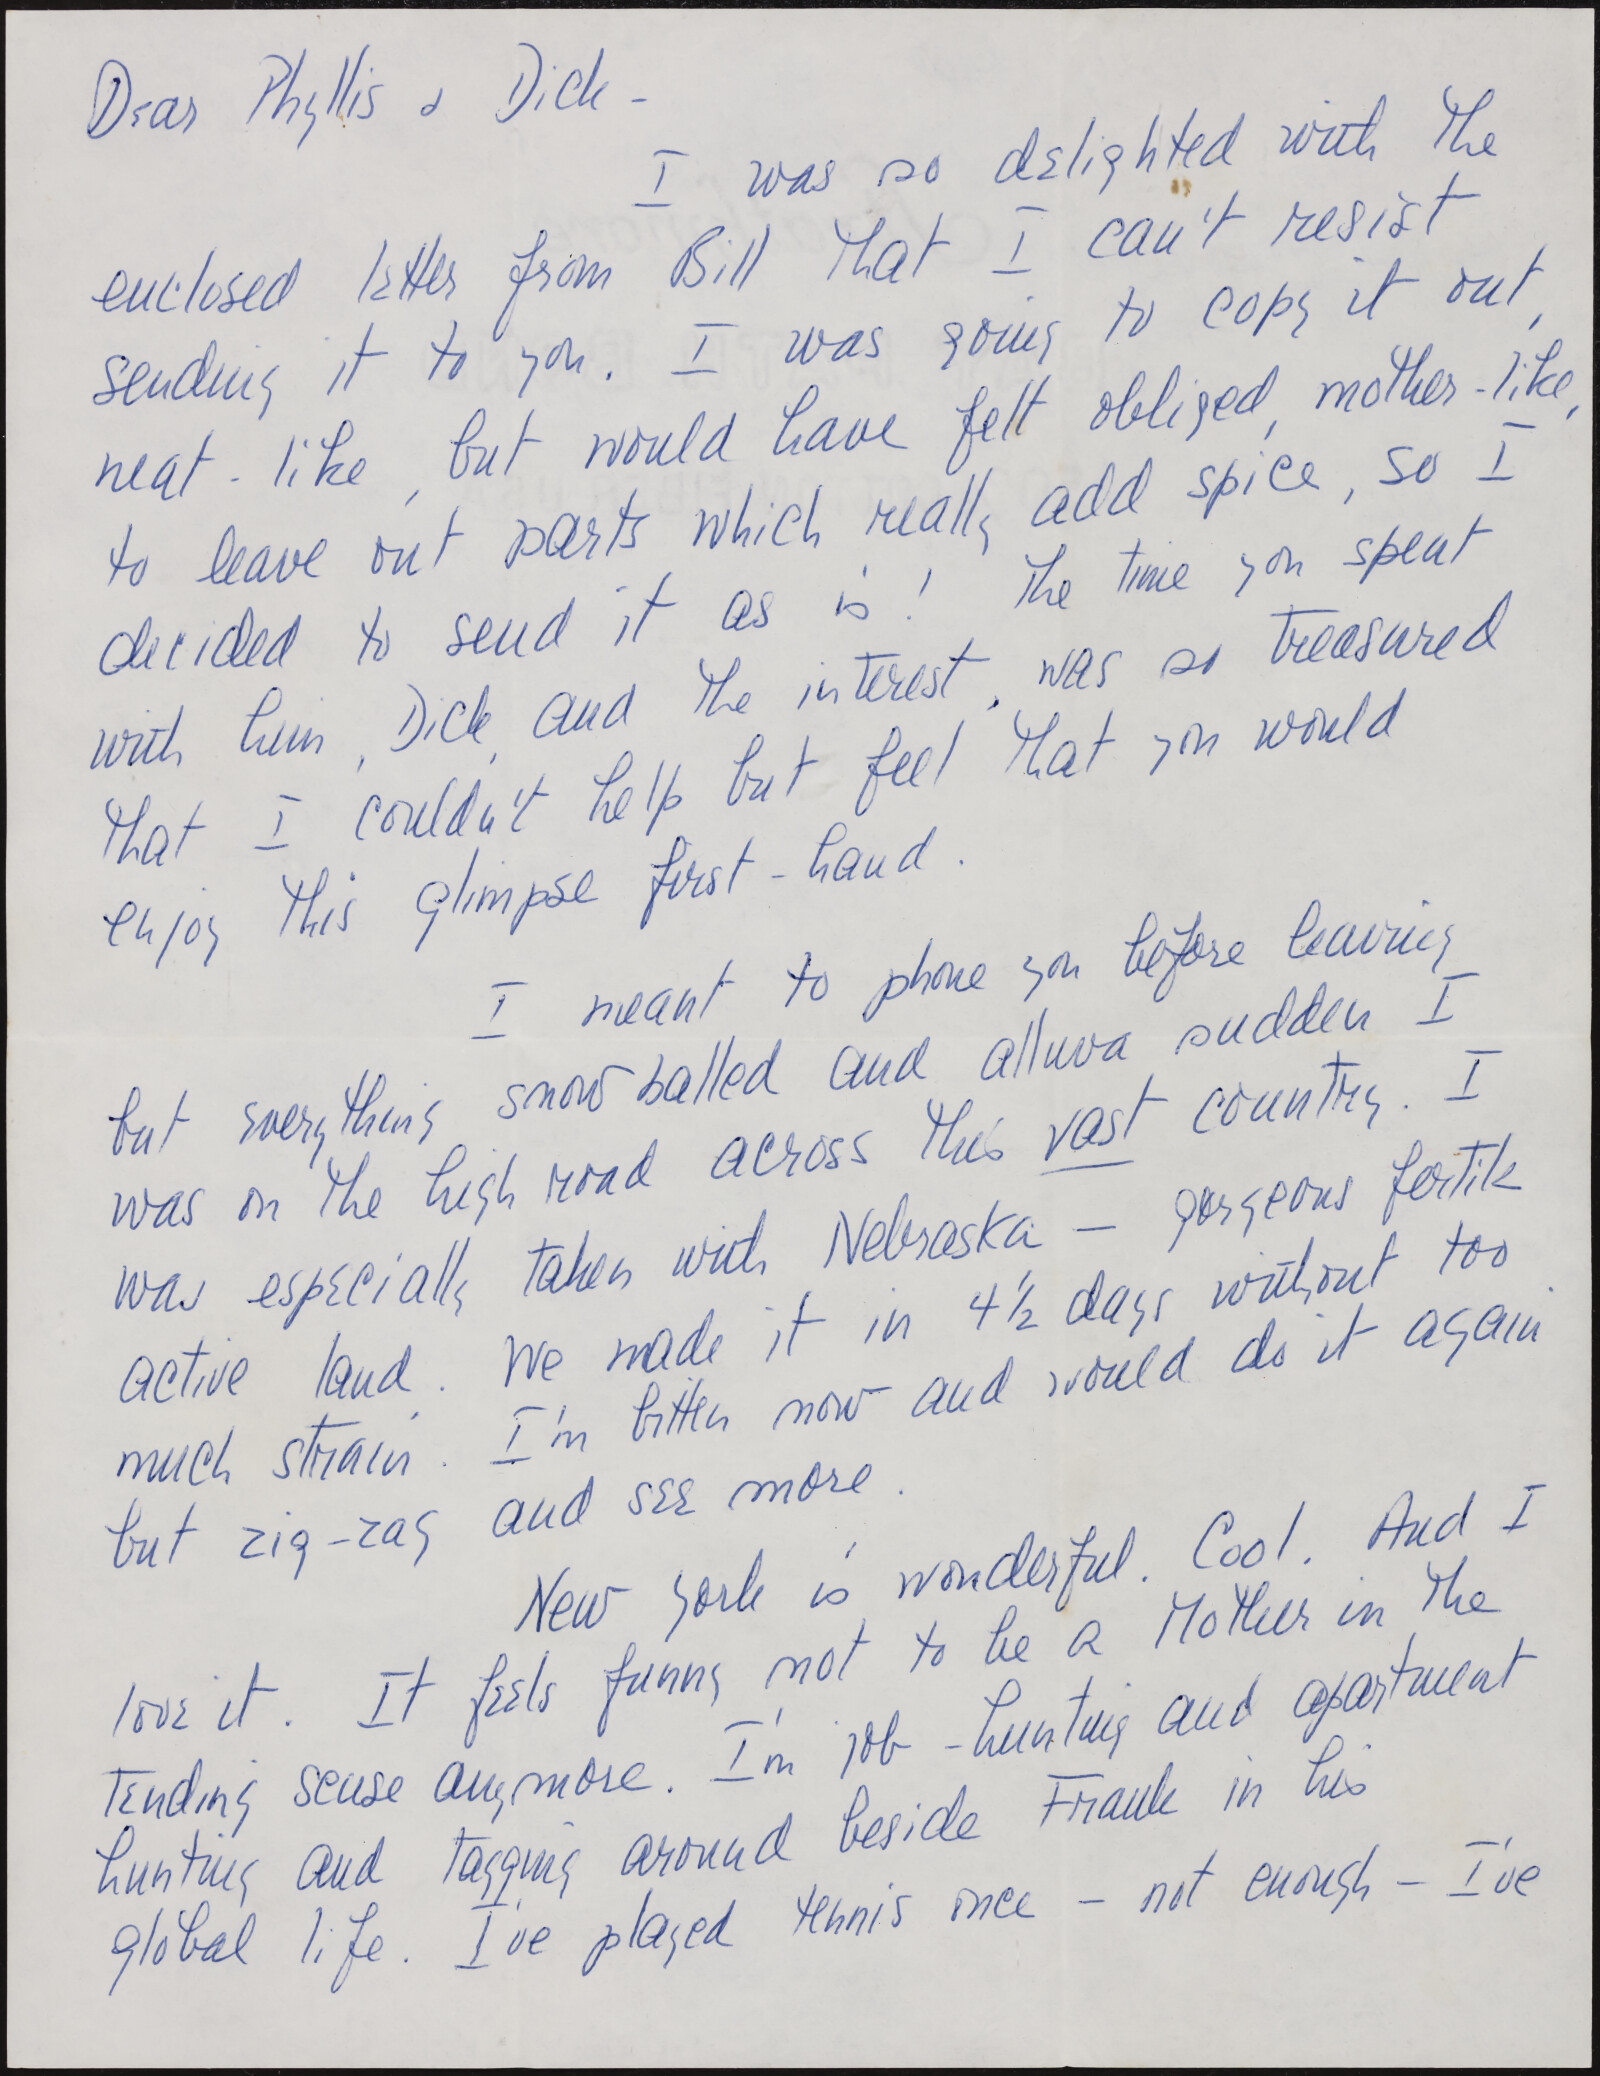 Dear Phyllis & Dick -
I was so delighted with the
enclosed letter from Bill that I can't resist
sending it to you. I was going to copy it out,
neat-like, but would have felt obliged, mother-like,
to leave out parts which really add spice, so I
decided to send it as is! The time you spent
with him, Dick, and the interest, was so treasured
that I couldn't help but feel that you would
enjoy this glimpse first-hand.
I meant to phone you before leaving
but everything snowballed and alluva sudden I
was on the high road across this vast country. I
was especially taken with Nebraska - gorgeous fertile
active land. We made it in 4½ days without too
much strain. I'm bitten now and would do it again
but zig-zag and see more.
New York is wonderful. Cool. And I
love it. It feels funny not to be a Mother in the
tending sense anymore. I'm job-hunting and apartment
hunting and tagging around beside Frank in his
global life. I've played tennis once - not enough - I've